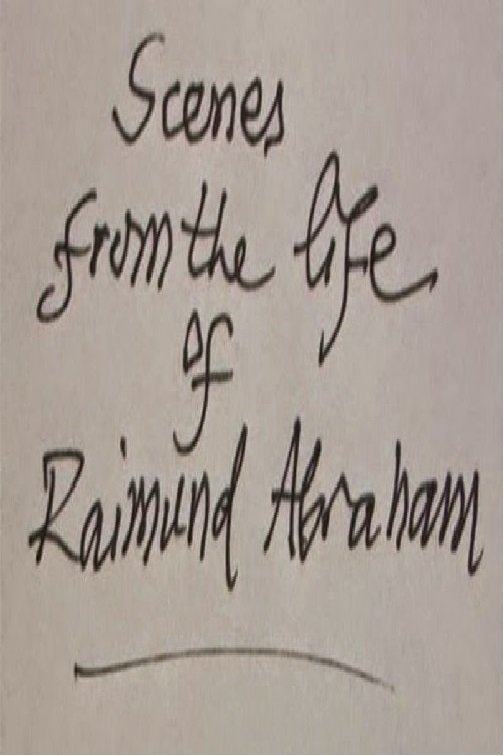 Scenes
from the life
of
Raimund Abraham